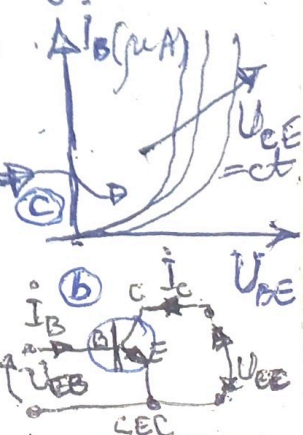 I_B(μA)
U_CE
=ct
c
U_BE
b
I_C
C
I_B
B
E
U_EB
U_CE
CEC